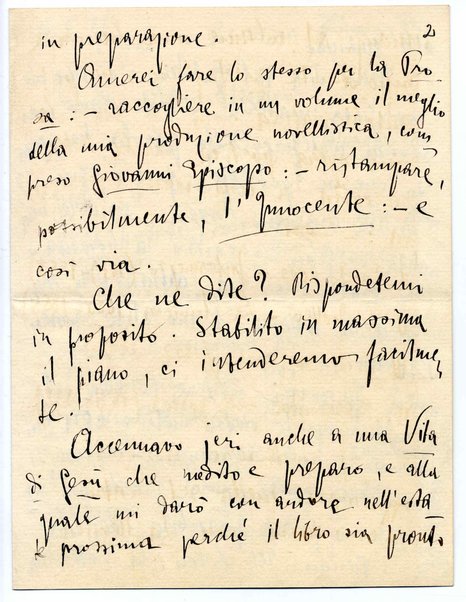 2
in preparazione.
Amerei fare lo stesso per la Pro
sa: – raccogliere in un volume il meglio
della mia produzione novellistica, com
preso Giovanni Episcopo: – ristampare,
possibilmente, l'Innocente: – e
così via.
Che ne dite? Rispondetemi
in proposito. Stabilito in massima
il piano, ci intenderemo facilmen
te.
Accennavo jeri anche a una Vita
di Gesù che medito e preparo, e alla
quale mi darò con ardore nell'esta
te prossima perché il libro sia pronto